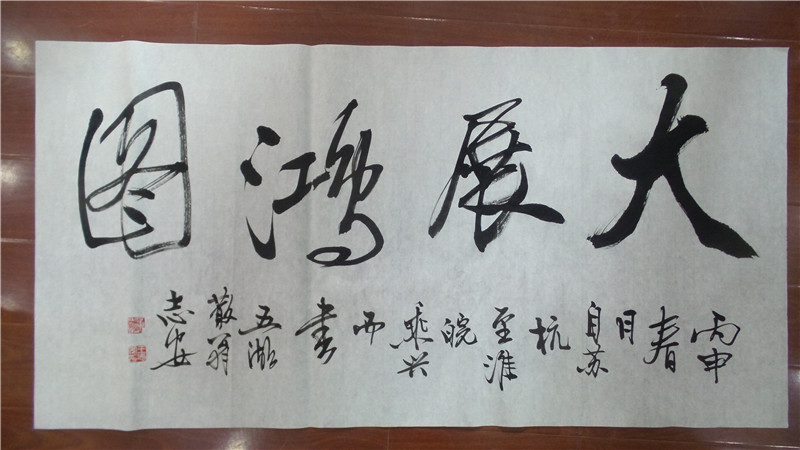 大展鸿图
丙申春月自苏杭至淮皖乘兴而书五湖散翁志安